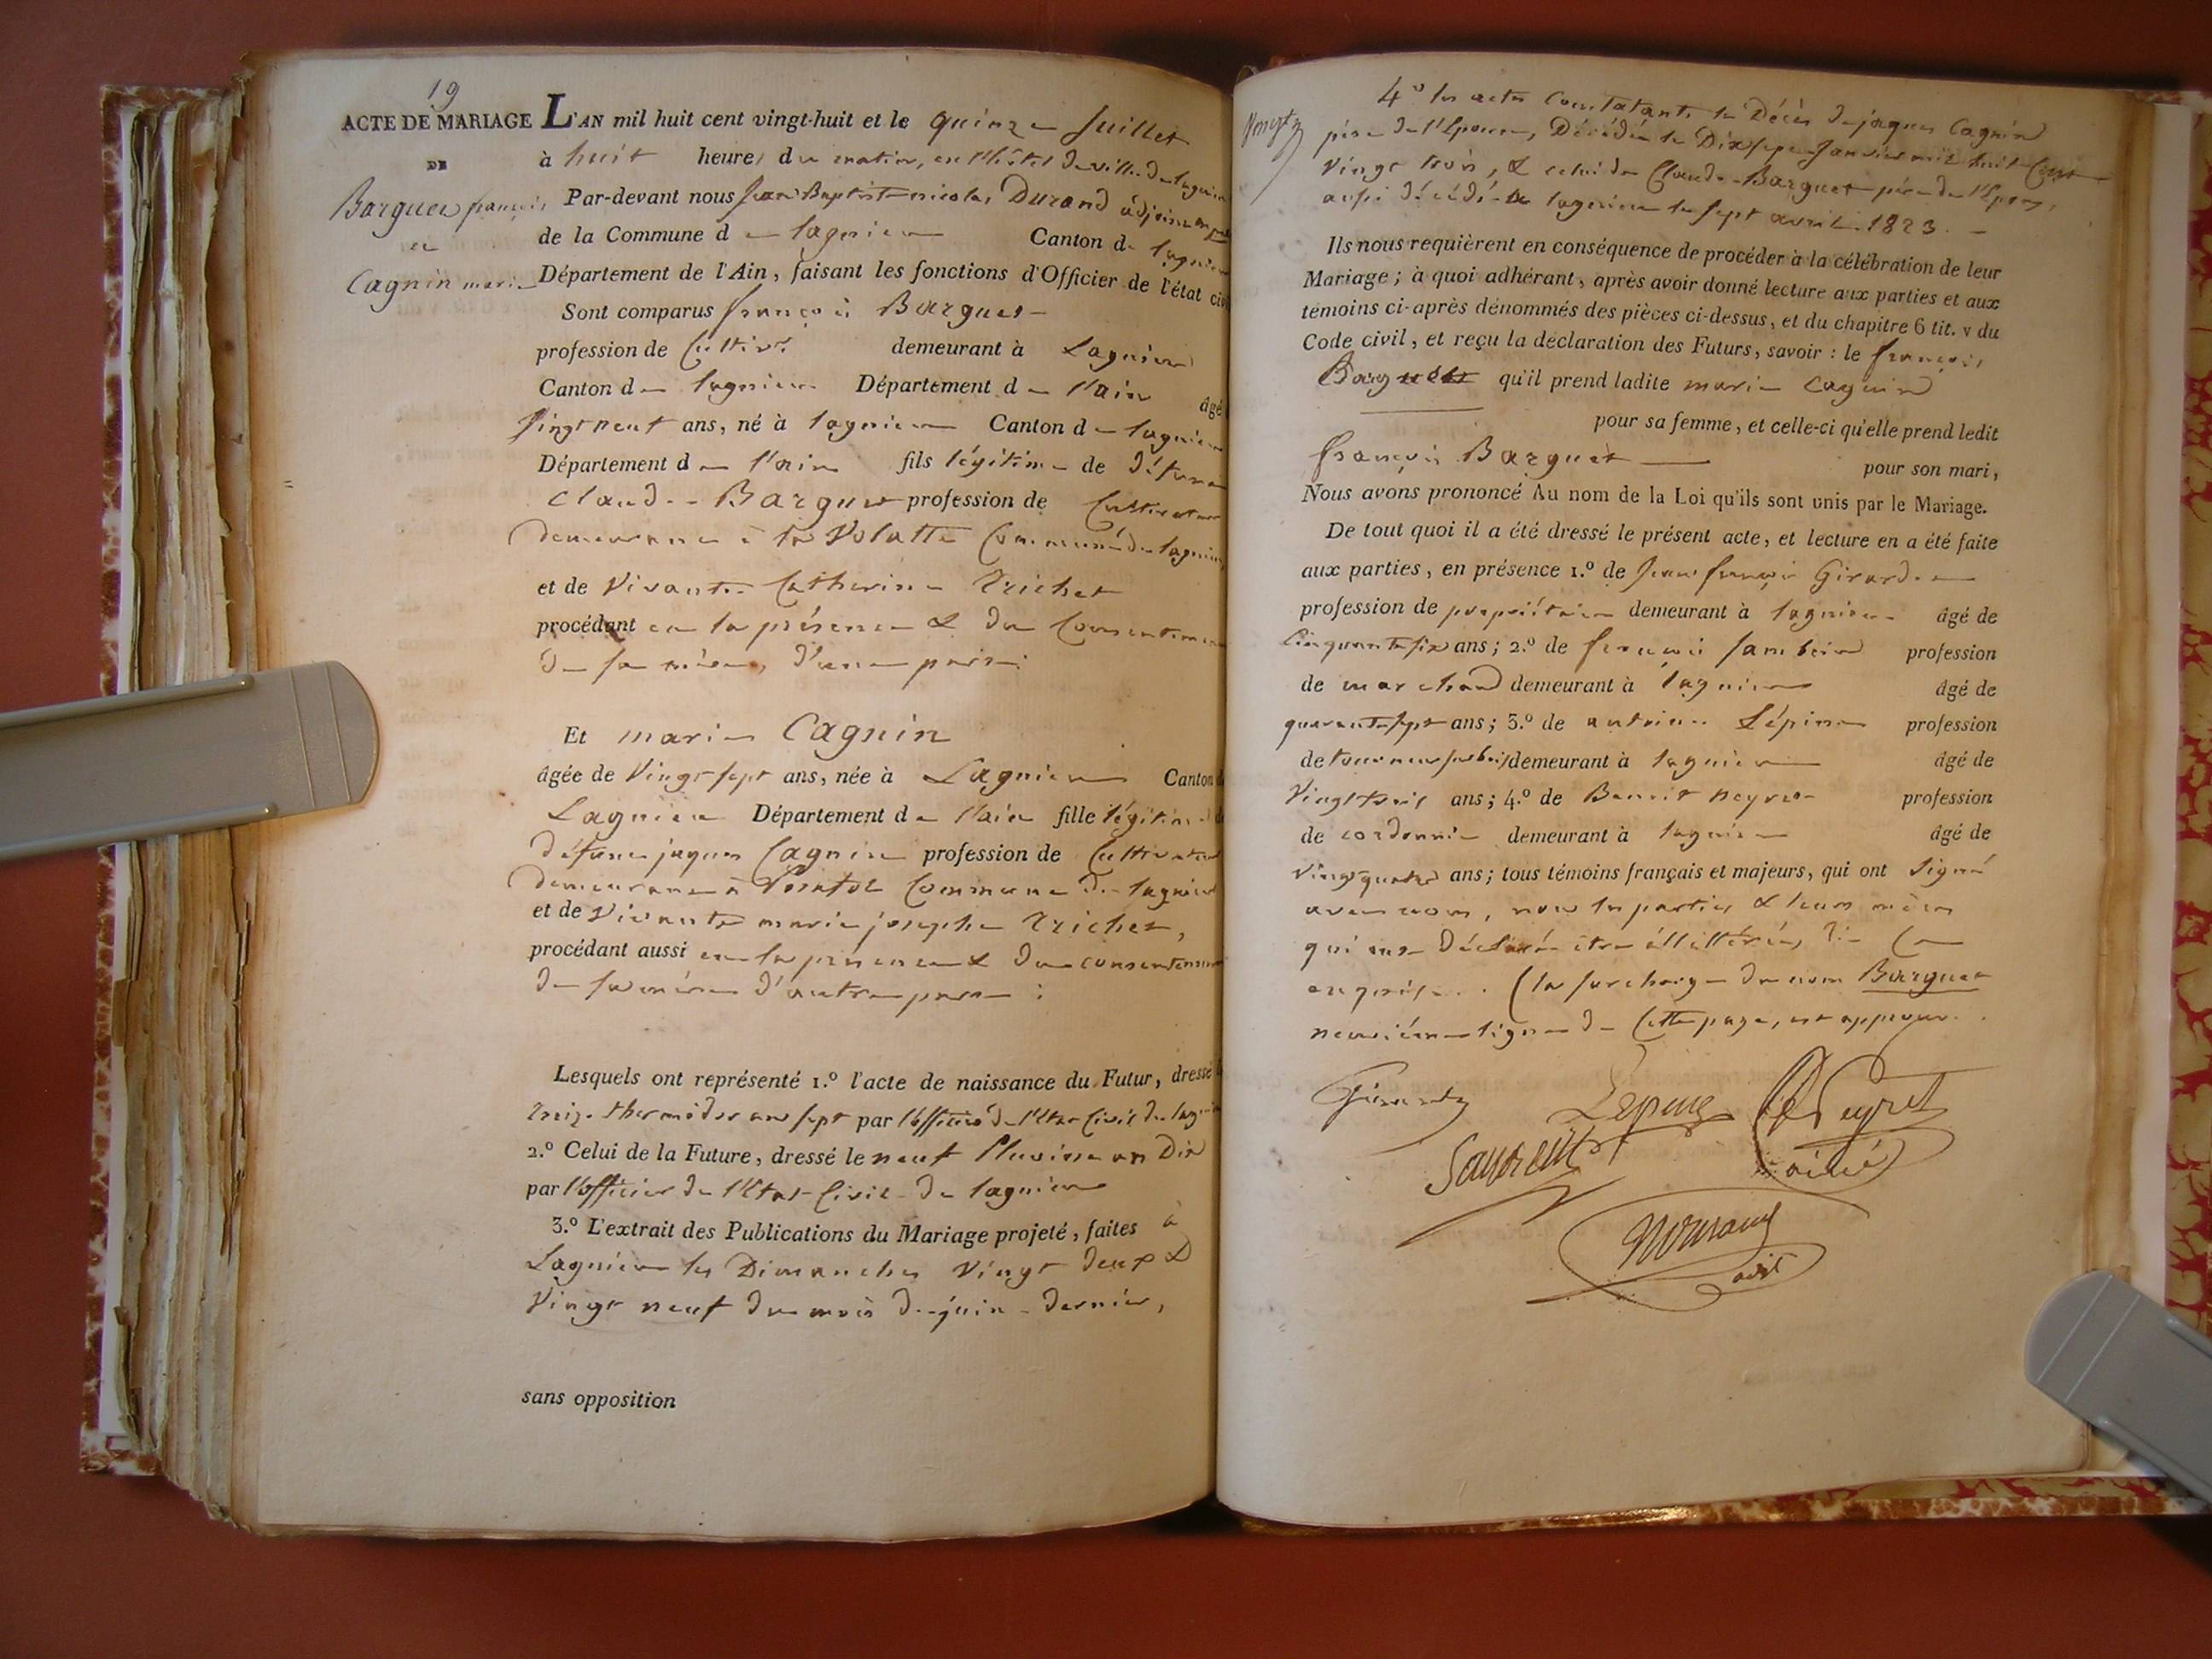 19
ACTE DE MARIAGE
DE
Barguet françois
et
Cagnin marie
L'AN mil huit cent vingt-huit et le quinze Juillet
à huit heures du matin, en l'hôtel de ville de lagnieu
Par-devant nous Jean Baptiste nicolas Durand adjoint
de la Commune de lagnieu Canton de lagnieu
Département de l'Ain, faisant les fonctions d'Officier de l'état civ
Sont comparus françois Barguet
profession de Cultivr demeurant à Lagnieu
Canton de lagnieu Département de l'ain âgé
Vingt neuf ans, né à lagnieu Canton de lagnieu
Département de l'ain fils légitime de défunt
Claude Barguet profession de Cultivateur
demeurant à la Volatte Commune de lagnieu
et de Vivante Catherine Trichet
procédant en la présence & du Consentement
de sa mère, d'une part:
Et marie Cagnin
âgée de Vingt sept ans, née à Lagnieu Canton d
Lagnieu Département de l'ain fille légitime d
défunt jaques Cagnin profession de Cultivateur
demeurant à Commune de lagnieu
et de Vivante marie josephe Trichet,
procédant aussi en la présence & du consentement
de sa mère d'autre part :
Lesquels ont représenté 1.º l'acte de naissance du Futur, dressé l
treize thermidor an sept par l'officier de l'Etat Civil de lagnieu
2.º Celui de la Future, dressé le neuf Pluviose an Dix
par l'officier de l'Etat Civil de lagnieu
3.º L'extrait des Publications du Mariage projeté, faites à
Lagnieu les Dimanches Vingt deux &
Vingt neuf du mois de juin dernier,
sans opposition
4º les actes Constatants le Décès de jaques Cagnin
père de l'Epouse, Décédé le Dix sept Janvier mil huit Cent
Vingt trois, & celui de Claude Barguet père de l'Epoux,
aussi décédé à lagnieu le sept avril 1823.
Ils nous requièrent en conséquence de procéder à la célébration de leur
Mariage; à quoi adhérant, après avoir donné lecture aux parties et aux
témoins ci-après dénommés des pièces ci-dessus, et du chapitre 6 tit. v du
Code civil, et reçu la déclaration des Futurs, savoir : le françois
Barguet qu'il prend ladite marie Cagnin
pour sa femme, et celle-ci qu'elle prend ledit
françois Barguet pour son mari,
Nous avons prononcé Au nom de la Loi qu'ils sont unis par le Mariage.
De tout quoi il a été dressé le présent acte, et lecture en a été faite
aux parties, en présence 1.º de Jean françois Girard
profession de propriétaire demeurant à lagnieu âgé de
Cinquante six ans; 2.º de françois profession
de marchand demeurant à lagnieu âgé de
quarante sept ans; 3.º de antoine Lépine profession
de tourneur sur bois demeurant à lagnieu âgé de
Vingt trois ans; 4.º de Benoit neyret profession
de cordonnier demeurant à lagnieu âgé de
Vingt quatre ans; tous témoins français et majeurs, qui ont Signé
avec nous, non les parties & leurs mères
qui ont Déclaré être illettérées, De Ce
enquis. (la surcharge du nom Barguet
neuvième ligne de Cette page, est approuvée.
Girard
Lepine
Neyret
ainé
Durand
adjt